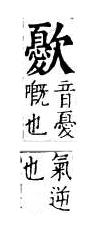 音憂
嘅也
氣逆
也